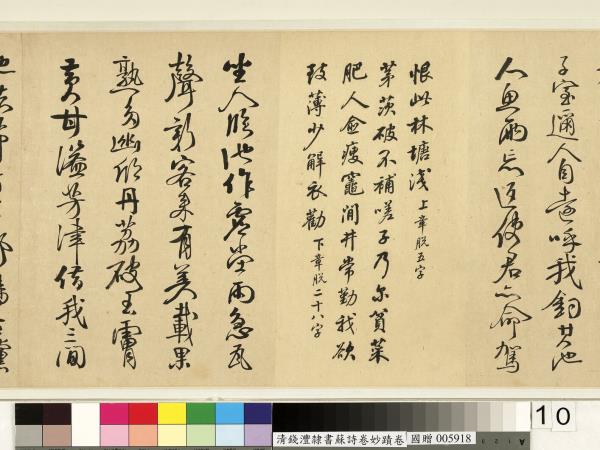 子室邇人自遠呼我釣其池
人魚兩忘返使君亦命駕
恨此林塘淺 上章脫五字
茅茨破不補嗟子乃尔貧菜
肥人愈瘦竈閒井常勤我欲
致薄少解衣勸 下章脫二十八字
坐人臨池作虛堂雨急瓦
聲新客來有美載果
熟多幽欣丹荔破玉膚
黃柑溢芳津借我三
清錢灃隸書蘇詩卷妙蹟卷 國贈 005918
10